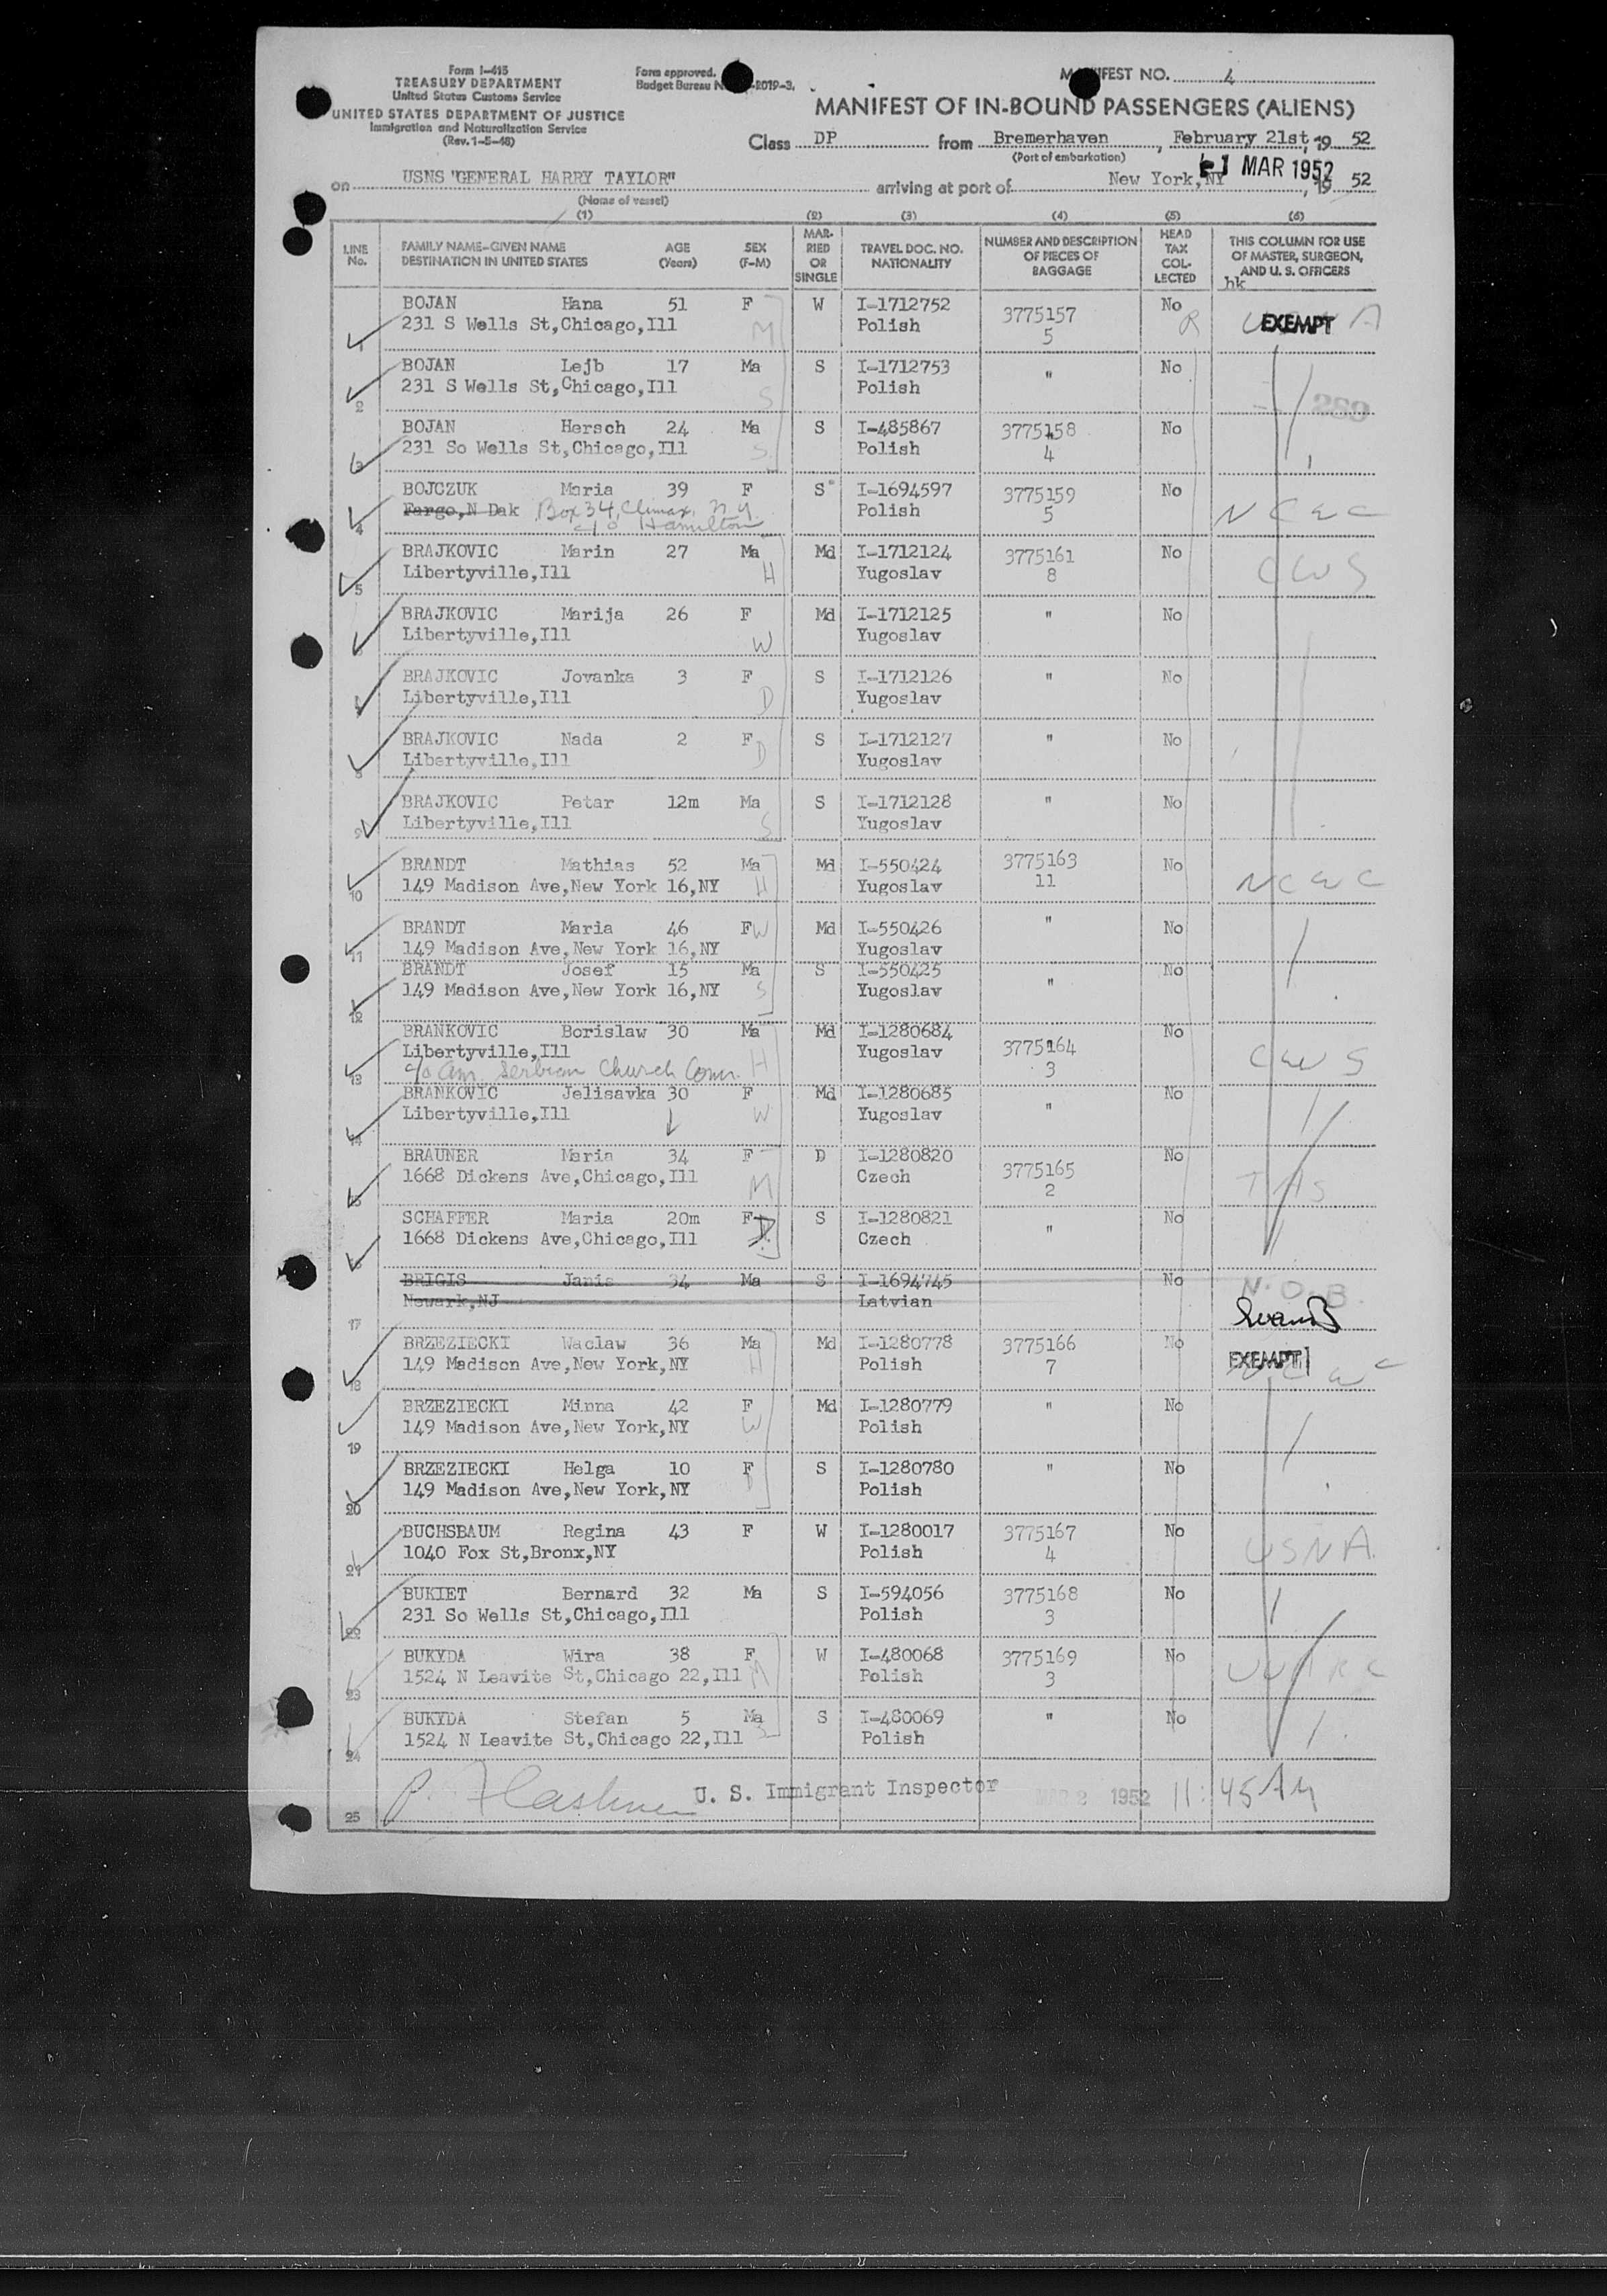 Form I-415
TREASURY DEPARTMENT
United States Customs Service
UNITED STATES DEPARTMENT OF JUSTICE
Immigration and Naturalization Service
(Rev. 1-5-48)
Form approved.
Budget Bureau No. -R019-3.
MANIFEST NO. 4
MANIFEST OF IN-BOUND PASSENGERS (ALIENS)
Class DP from Bremerhaven, February 21st, 19 52
(Port of embarkation)
1 MAR 1952
on USNS "GENERAL HARRY TAYLOR" arriving at port of New York,NY, 19 52
(Name of vessel)
(1) (2) (3) (4) (5) (6)
LINE No. FAMILY NAME-GIVEN NAME DESTINATION IN UNITED STATES AGE (Years) SEX (F-M) MARRIED OR SINGLE TRAVEL DOC. NO. NATIONALITY NUMBER AND DESCRIPTION OF PIECES OF BAGGAGE HEAD TAX COLLECTED THIS COLUMN FOR USE OF MASTER, SURGEON, AND U. S. OFFICERS
hk
BOJAN Hana 51 F W I-1712752 3775157 No EXEMPT
1 231 S Wells St,Chicago,Ill M Polish 5 R
BOJAN Lejb 17 Ma S I-1712753 " No
2 231 S Wells St,Chicago,Ill S Polish
BOJAN Hersch 24 Ma S I-485867 3775158 No
3 231 So Wells St,Chicago,Ill S Polish 4
BOJCZUK Maria 39 F S I-1694597 3775159 No
4 Fargo,N Dak Box 34, Climax, N.Y. Polish 5 NCWC
c/o Hamilton
BRAJKOVIC Marin 27 Ma Md I-1712124 3775161 No
5 Libertyville,Ill H Yugoslav 8 CWS
BRAJKOVIC Marija 26 F Md I-1712125 " No
Libertyville,Ill W Yugoslav
BRAJKOVIC Jovanka 3 F S I-1712126 " No
Libertyville,Ill D Yugoslav
BRAJKOVIC Nada 2 F S I-1712127 " No
8 Libertyville,Ill D Yugoslav
BRAJKOVIC Petar 12m Ma S I-1712128 " No
9 Libertyville,Ill S Yugoslav
BRANDT Mathias 52 Ma Md I-550424 3775163 No
10 149 Madison Ave,New York 16,NY H Yugoslav 11 NCWC
BRANDT Maria 46 F W Md I-550426 " No
11 149 Madison Ave,New York 16,NY Yugoslav
BRANDT Josef 15 Ma S I-550425 " No
12 149 Madison Ave,New York 16,NY S Yugoslav
BRANKOVIC Borislaw 30 Ma Md I-1280684 3775164 No
13 Libertyville,Ill H Yugoslav 3 CWS
c/o Am. Serbian Church Comm.
BRANKOVIC Jelisavka 30 F Md I-1280685 " No
14 Libertyville,Ill W Yugoslav
BRAUNER Maria 34 F D I-1280820 3775165 No
15 1668 Dickens Ave,Chicago,Ill M Czech 2
SCHAFFER Maria 20m F S I-1280821 " No
16 1668 Dickens Ave,Chicago,Ill D Czech
BRIGIS Janis 34 Ma S I-1694745 No N.O.B.
17 Newark,NJ Latvian
BRZEZIECKI Waclaw 36 Ma Md I-1280778 3775166 No EXEMPT
18 149 Madison Ave,New York,NY H Polish 7
BRZEZIECKI Minna 42 F Md I-1280779 " No
19 149 Madison Ave,New York,NY W Polish
BRZEZIECKI Helga 10 F S I-1280780 " No
20 149 Madison Ave,New York,NY D Polish
BUCHSBAUM Regina 43 F W I-1280017 3775167 No
21 1040 Fox St,Bronx,NY Polish 4 USNA
BUKIET Bernard 32 Ma S I-594056 3775168 No
22 231 So Wells St,Chicago,Ill Polish 3
BUKYDA Wira 38 F W I-480068 3775169 No
23 1524 N Leavite St,Chicago 22,Ill M Polish 3
BUKYDA Stefan 5 Ma S I-480069 " No
24 1524 N Leavite St,Chicago 22,Ill S Polish
25 P. U. S. Immigrant Inspector MAR 2 1952 11:45 AM